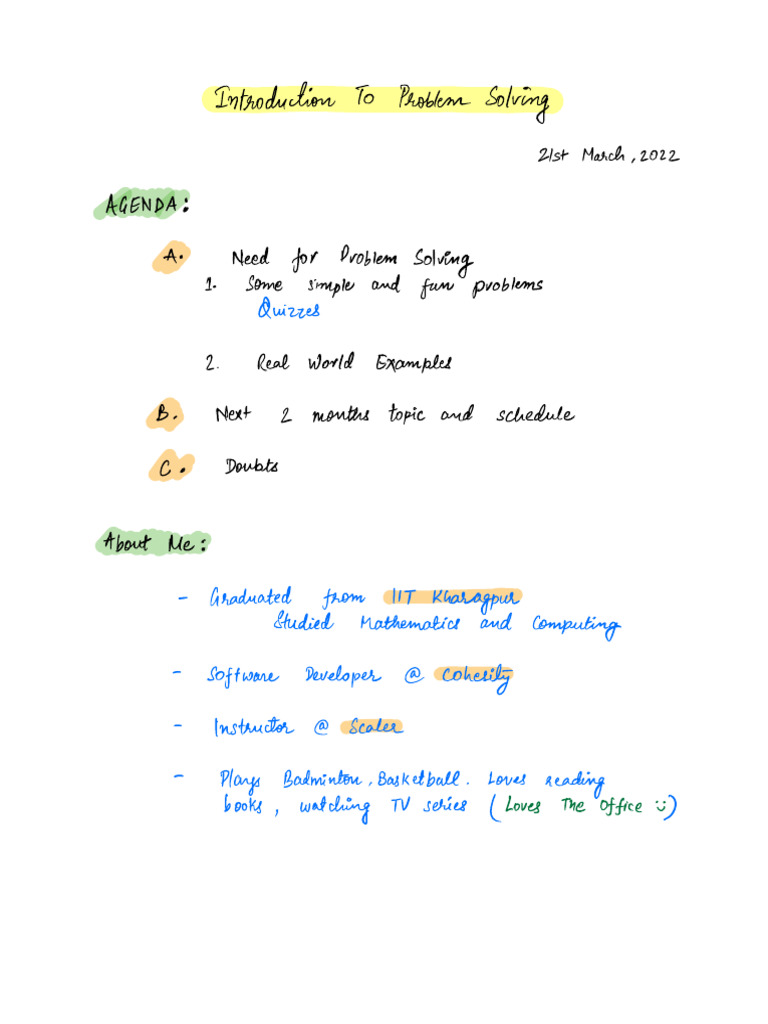 Introduction To Problem Solving
21st March, 2022
AGENDA:
A. Need for Problem Solving
1. Some simple and fun problems
Quizzes
2. Real World Examples
B. Next 2 months topic and schedule
C. Doubts
About Me:
- Graduated from IIT Kharagpur
Studied Mathematics and Computing
- Software Developer @ Cohesity
- Instructor @ Scaler
- Plays Badminton, Basketball. Loves reading
books, watching TV series (Loves The Office :))